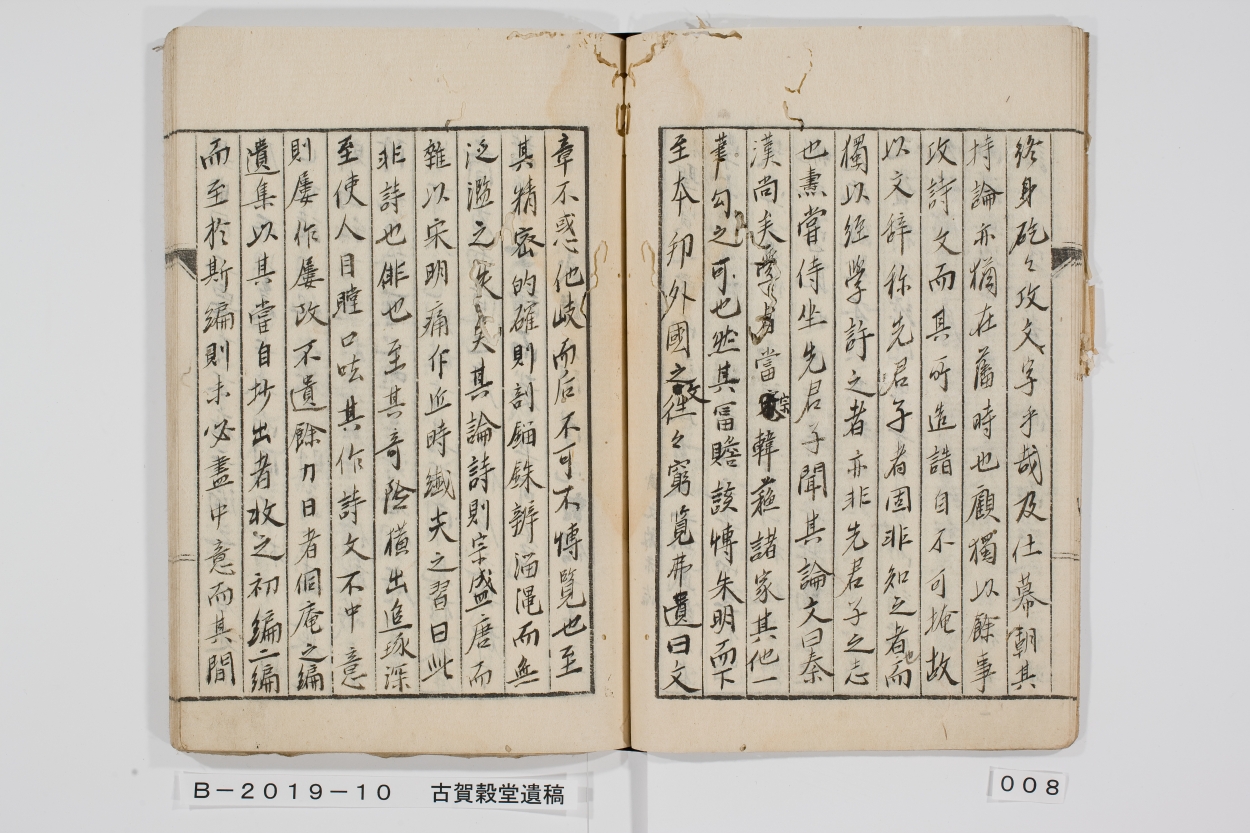 終身矻々攻文字乎哉及仕幕朝其
持論亦猶在藩時也顧獨以餘事
攻詩文而其所造詣自不可掩故
以文辞称先君子者固非知之者而
獨以經學許之者亦非先君子之志
也燾嘗侍坐先君子聞其論文曰秦
漢尚矣當宗韓蘇諸家其他一
筆勾之可也然其冨贍該愽朱明而下
至本邦外國之文往々窮覧弗遺曰文
章不惑他岐而后不可不愽覧也至
其精密的確則剖錙銖辨淄澠而無
泛濫之失矣其論詩則宗盛唐而
雜以宋明痛作近時纎夫之習曰此
非詩也俳也至其奇险横出追琢深
至使人目瞠口呿其作詩文不中意
則屢作屢改不遺餘力日者侗庵之編
遺集以其嘗自抄出者收之初編二編
而至於斯編則未必盡中意而其間
B－2019－10　古賀穀堂遺稿
008